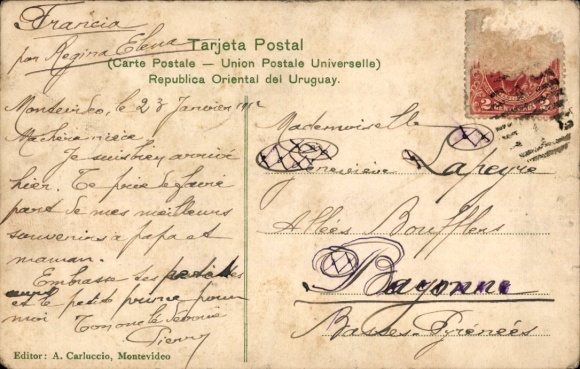 Francia
par Regina Elena
Tarjeta Postal
(Carte Postale — Union Postale Universelle)
Republica Oriental del Uruguay.
Montevideo, le 23 Janvier
Ma chère nièce.
Je suis bien arrivé
hier. Te prie de faire
part de mes meilleurs
souvenirs à papa et
maman.
Embrasse ses petites
et le petit prince pour
moi Ton oncle
Pierre
Mademoiselle
Geneviève Lapeyre
Allées Boufflers
Bayonne
Basses-Pyrénées
2
Editor: A. Carluccio, Montevideo